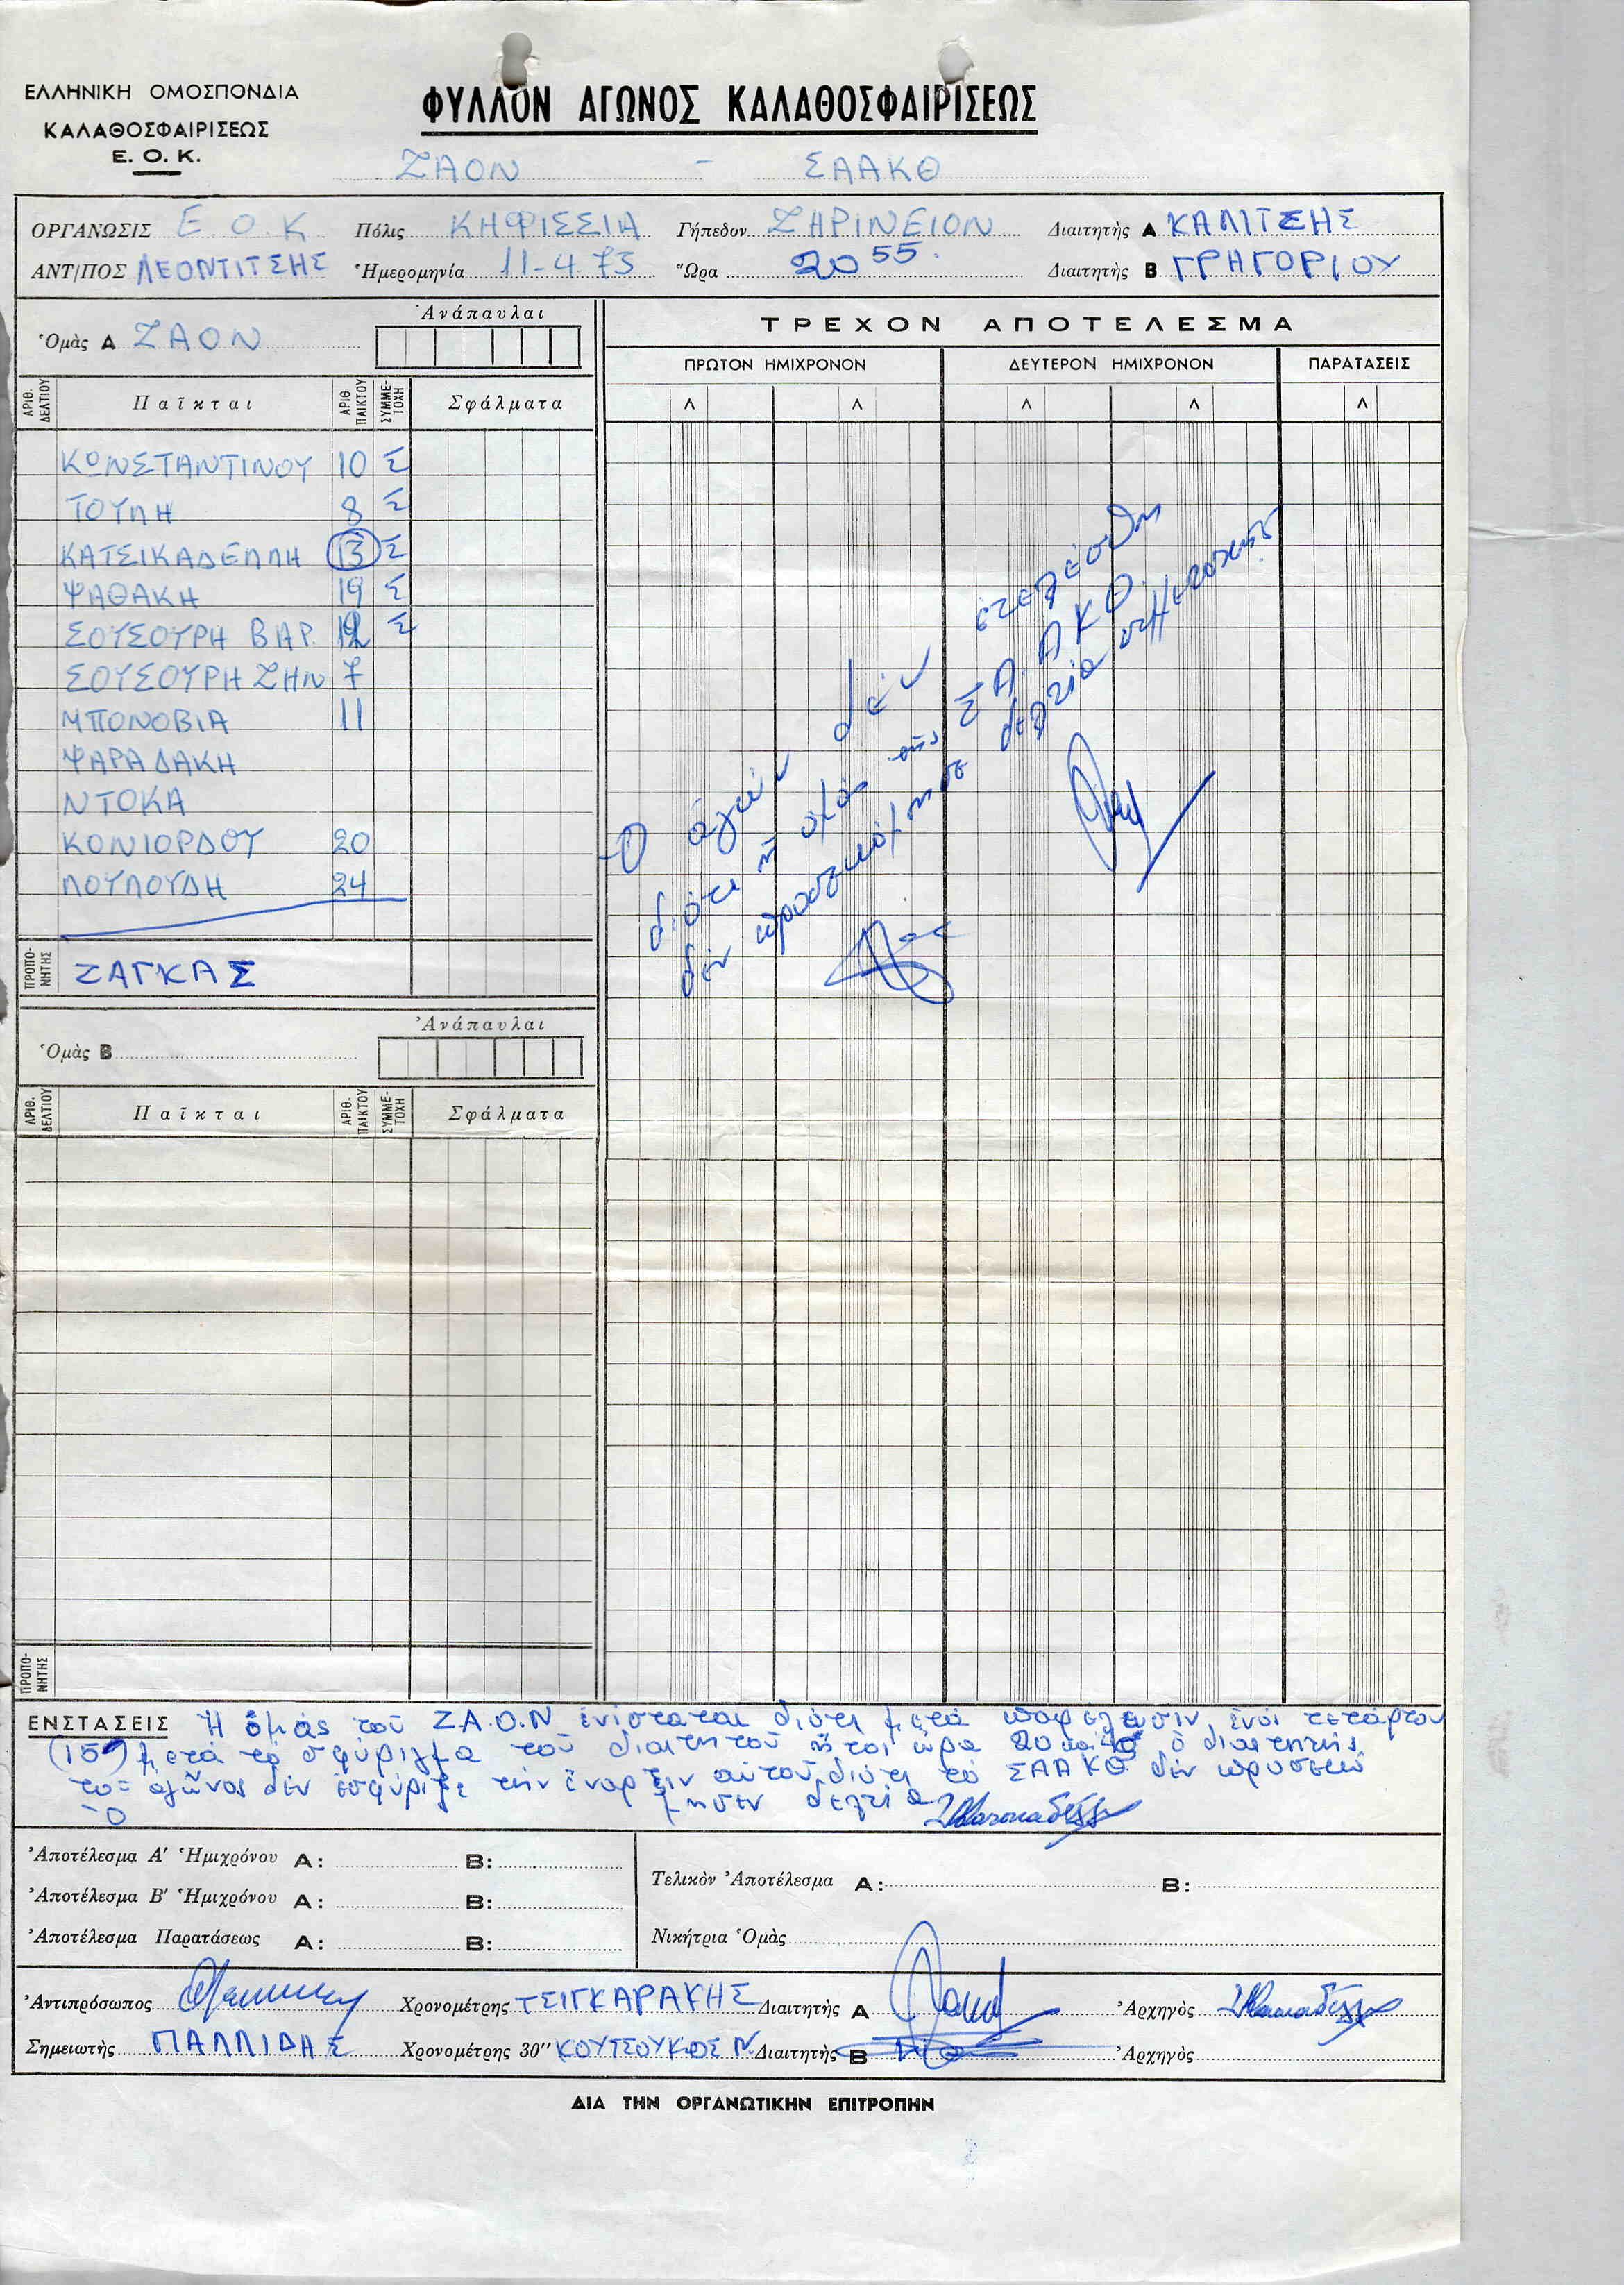 ΕΛΛΗΝΙΚΗ ΟΜΟΣΠΟΝΔΙΑ
ΚΑΛΑΘΟΣΦΑΙΡΙΣΕΩΣ
Ε. Ο. Κ.
ΦΥΛΛΟΝ ΑΓΩΝΟΣ ΚΑΛΑΘΟΣΦΑΙΡΙΣΕΩΣ
ΖΑΟΝ - ΣΑΑΚΘ
ΟΡΓΑΝΩΣΙΣ Ε.Ο.Κ Πόλις ΚΗΦΙΣΣΙΑ Γήπεδον ΖΗΡΙΝΕΙΟΝ Διαιτητὴς Α ΚΑΛΙΤΣΗΣ
ΑΝΤ/ΠΟΣ ΛΕΟΝΤΙΤΣΗΣ Ἡμερομηνία 11-4-73 Ὥρα 20 55 Διαιτητὴς Β ΓΡΗΓΟΡΙΟΥ
Ὁμὰς Α ΖΑΟΝ
Ἀνάπαυλαι
ΑΡΙΘ. ΔΕΛΤΙΟΥ Παῖκται ΑΡΙΘ ΠΑΙΚΤΟΥ ΣΥΜΜΕ-ΤΟΧΗ Σφάλματα
ΚΩΝΣΤΑΝΤΙΝΟΥ 10 Σ
ΤΟΥΛΗ 8 Σ
ΚΑΤΣΙΚΑΔΕΛΛΗ 13 Σ
ΨΑΘΑΚΗ 19 Σ
ΣΟΥΣΟΥΡΗ ΒΑΡ. 12 Σ
ΣΟΥΣΟΥΡΗ ΖΗΝ 7
ΜΠΟΝΟΒΙΑ 11
ΨΑΡΑΔΑΚΗ
ΝΤΟΚΑ
ΚΟΝΙΟΡΔΟΥ 20
ΛΟΥΛΟΥΔΗ 24
ΠΡΟΠΟ-ΝΗΤΗΣ ΖΑΓΚΑΣ
Ὁμὰς Β
Ἀνάπαυλαι
ΑΡΙΘ. ΔΕΛΤΙΟΥ Παῖκται ΑΡΙΘ. ΠΑΙΚΤΟΥ ΣΥΜΜΕ-ΤΟΧΗ Σφάλματα
ΠΡΟΠΟ-ΝΗΤΗΣ
ΤΡΕΧΟΝ ΑΠΟΤΕΛΕΣΜΑ
ΠΡΩΤΟΝ ΗΜΙΧΡΟΝΟΝ ΔΕΥΤΕΡΟΝ ΗΜΙΧΡΟΝΟΝ ΠΑΡΑΤΑΣΕΙΣ
Λ Λ Λ Λ Λ
Ὁ ἀγών δέν ἐτελέσθη
διότι ἡ ομάς τῆς Σ.Α.Α.Κ.Θ.
δέν προσεκόμησε δελτία συμμετοχῆς
ΕΝΣΤΑΣΕΙΣ Ἡ ὁμάς τοῦ Ζ.Α.Ο.Ν ἐνίσταται διότι μετά παρέλευσιν ἑνός τετάρτου
(15') μετά τό σφύριγμα τοῦ διαιτητοῦ ἤτοι ὥρα 20 καί ὁ διαιτητής
τοῦ ἀγῶνος δέν ἐσφύριξε τήν ἔναρξιν αὐτοῦ διότι τό ΣΑΑΚΘ δέν προσεκό
μησεν δελτία
Ἀποτέλεσμα Α' Ἡμιχρόνου Α: Β:
Ἀποτέλεσμα Β' Ἡμιχρόνου Α: Β:
Ἀποτέλεσμα Παρατάσεως Α: Β:
Τελικὸν Ἀποτέλεσμα Α: Β:
Νικήτρια Ὁμὰς
Ἀντιπρόσωπος Χρονομέτρης ΤΣΙΓΚΑΡΑΚΗΣ Διαιτητὴς Α Ἀρχηγὸς
Σημειωτὴς ΠΑΛΛΙΔΗΣ Χρονομέτρης 30'' ΚΟΥΤΣΟΥΚΟΣ Ν. Διαιτητὴς Β Ἀρχηγὸς
ΔΙΑ ΤΗΝ ΟΡΓΑΝΩΤΙΚΗΝ ΕΠΙΤΡΟΠΗΝ